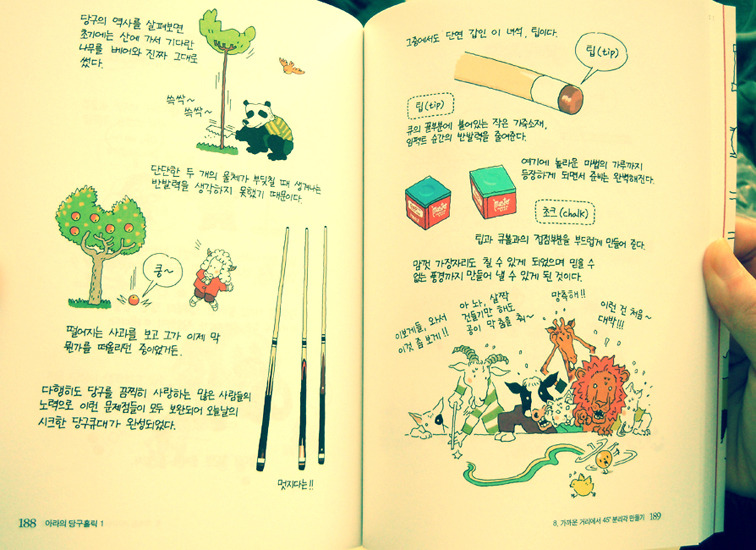 당구의 역사를 살펴보면
초기에는 산에 가서 기다란
나무를 베어와 진짜 그대로
썼다.
쓱싹~
쓱싹~
단단한 두 개의 물체가 부딪칠 때 생겨나는
반발력을 생각하지 못했기 때문이다.
쿵~
떨어지는 사과를 보고 그가 이제 막
뭔가를 떠올리던 중이었거든.
다행히도 당구를 끔찍히 사랑하는 많은 사람들의
노력으로 이런 문제점들이 모두 보완되어 오늘날의
시크한 당구큐대가 완성되었다.
멋지다는!!
188 아라의 당구홀릭 1
그중에서도 단연 갑인 이 녀석, 팁이다.
팁(tip)
팁(tip)
큐의 끝부분에 붙어있는 작은 가죽소재,
임팩트 순간의 반발력을 줄여준다.
여기에 놀라운 마법의 가루까지
등장하게 되면서 준비는 완벽해진다.
초크(chalk)
팁과 큐볼과의 접점부분을 부드럽게 만들어 준다.
맘껏 가장자리도 칠 수 있게 되었으며 믿을 수
없는 풍경까지 만들어 낼 수 있게 된 것이다.
이보게들, 와서
이것 좀 보게!!
아 놔, 살짝
건들기만 해도
공이 막 춤을 춰~
망측해!!
이런 건 처음~
대박!!!
8. 가까운 거리에서 45° 분리각 만들기 189